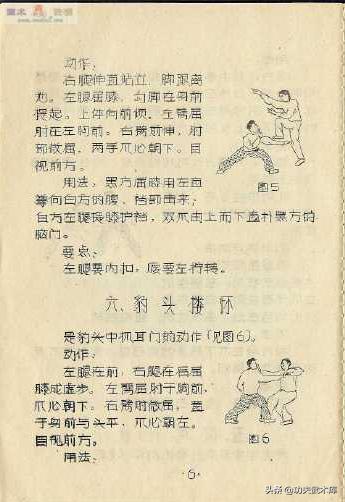 动作:
右腿伸直站立，脚跟离
地。左腿屈膝，勾脚在身前
提起。上体向前倾。左臂屈
肘在左胸前。右臂前伸，肘
部微屈，两手爪心朝下。目
视前方。
用法，黑方屈膝用左直
拳向白方的腹、裆部击来；
白方左腿提膝护裆，双爪由上而下直扑黑方的
脑门。
图5
要点:
左腿要内扣，膝要左拧转。
六、豹头 环
是豹头中抓耳门的动作(见图6)。
动作:
左腿在前，右腿在后屈
膝成虚步。左臂屈肘于胸前，
爪心朝下。右臂肘微屈，置
于身前与头平，爪心朝左。
目视前方。
图6
用法:
·6·
头条 @功夫武术库